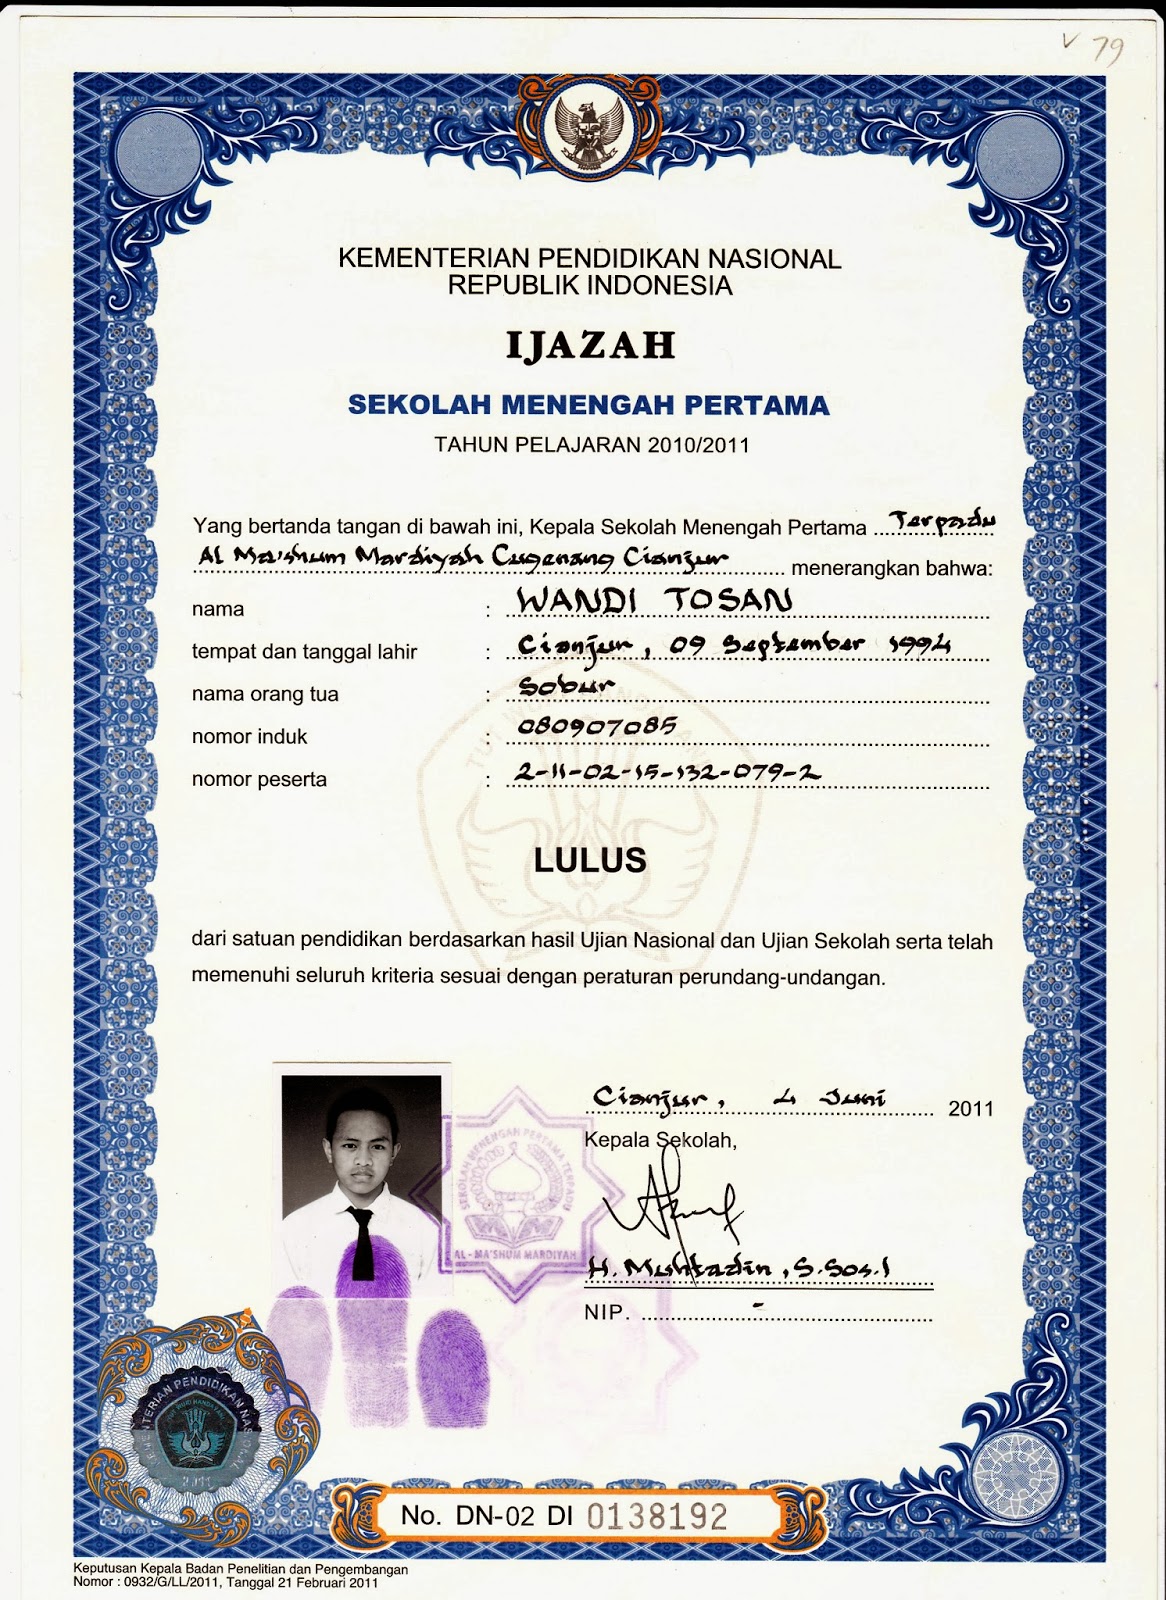 V 79
KEMENTERIAN PENDIDIKAN NASIONAL
REPUBLIK INDONESIA
IJAZAH
SEKOLAH MENENGAH PERTAMA
TAHUN PELAJARAN 2010/2011
Yang bertanda tangan di bawah ini, Kepala Sekolah Menengah Pertama Terpadu
Al Ma'shum Mardiyah Cugenang Cianjur menerangkan bahwa:
nama : WANDI TOSAN
tempat dan tanggal lahir : Cianjur, 09 September 1994
nama orang tua : Sobur
nomor induk : 080907085
nomor peserta : 2-11-02-15-132-079-2
TUT WURI HANDAYANI
LULUS
dari satuan pendidikan berdasarkan hasil Ujian Nasional dan Ujian Sekolah serta telah
memenuhi seluruh kriteria sesuai dengan peraturan perundang-undangan.
Cianjur, 4 Juni 2011
Kepala Sekolah,
SEKOLAH MENENGAH PERTAMA TERPADU
AL-MA'SHUM MARDIYAH
H. Muhtadin, S.Sos.I
NIP. -
KEMENTERIAN PENDIDIKAN NASIONAL
2011
No. DN-02 DI 0138192
Keputusan Kepala Badan Penelitian dan Pengembangan
Nomor : 0932/G/LL/2011, Tanggal 21 Februari 2011